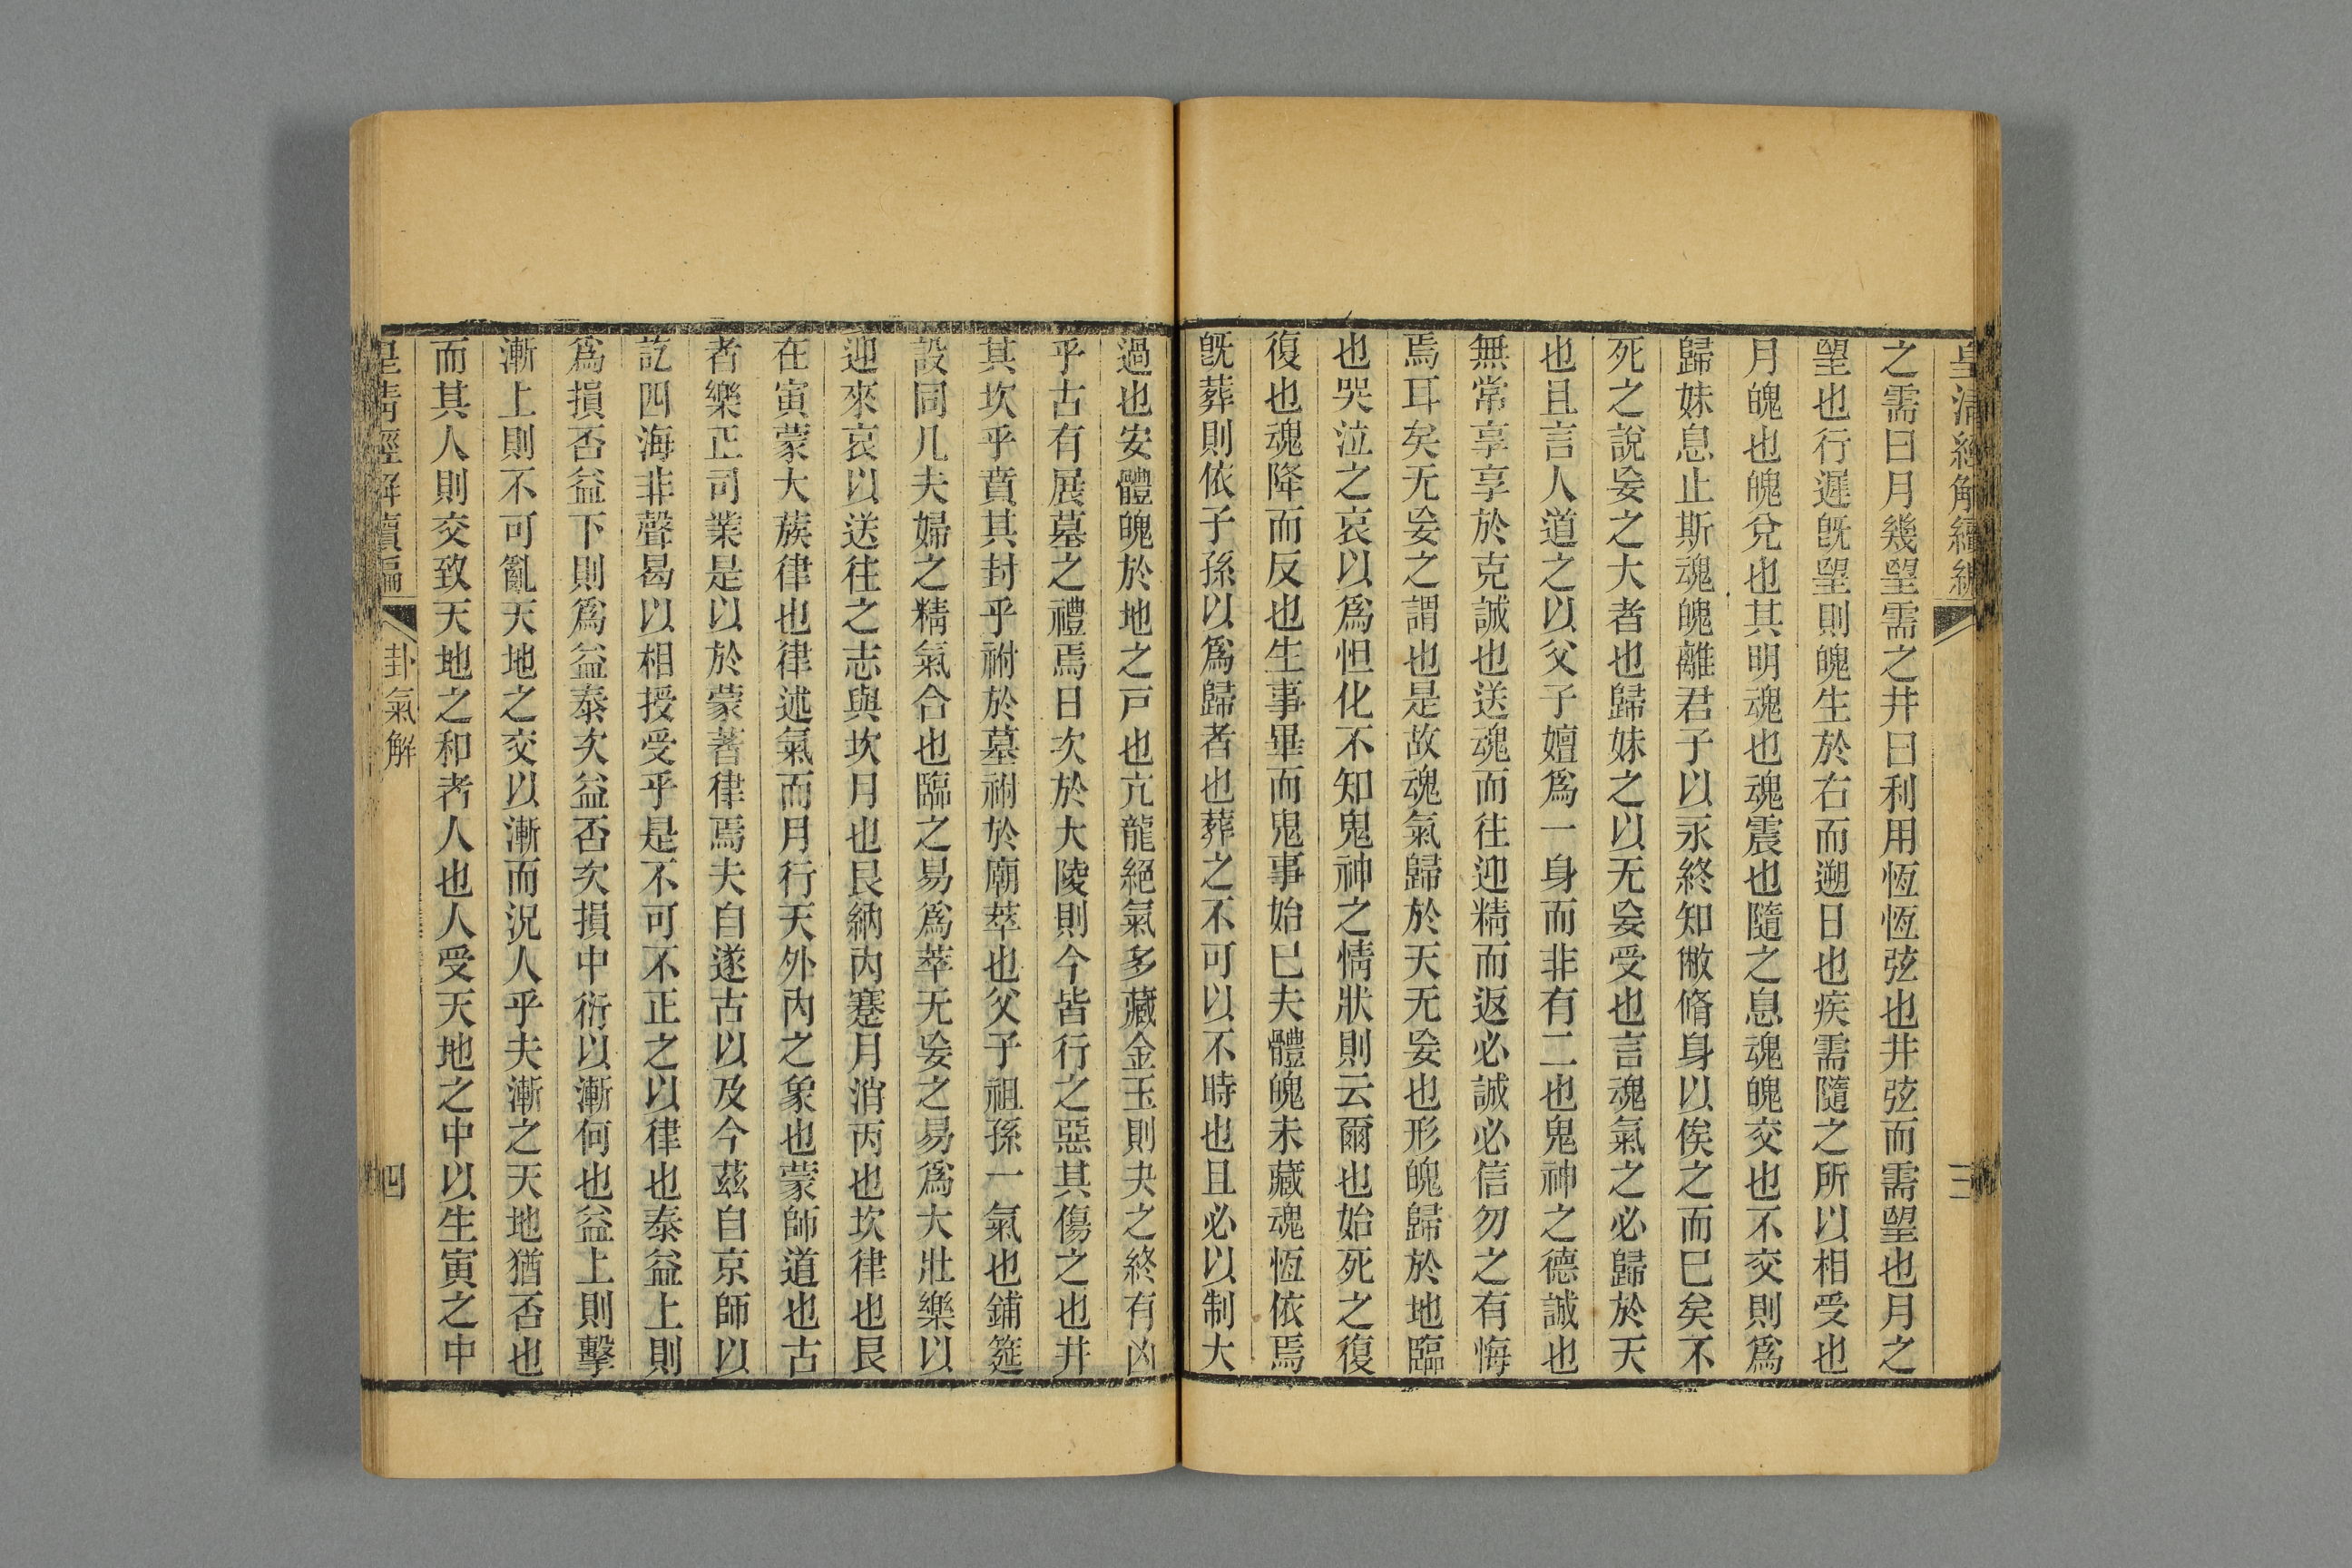 皇清經解續編
三
之需曰月幾望需之井曰利用恆恆弦也井弦而需望也月之
望也行遲旣望則魄生於右而遡日也疾需隨之所以相受也
月魄也魄兌也其明魂也魂震也隨之息魂魄交也不交則爲
歸妹息止斯魂魄離君子以永終知敝脩身以俟之而巳矣不
死之說妄之大者也歸妹之以无妄受也言魂氣之必歸於天
也且言人道之以父子嬗爲一身而非有二也鬼神之德誠也
無常享享於克誠也送魂而往迎精而返必誠必信勿之有悔
焉耳矣无妄之謂也是故魂氣歸於天无妄也形魄歸於地臨
也哭泣之哀以爲怛化不知鬼神之情狀則云爾也始死之復
復也魂降而反也生事畢而鬼事始巳夫體魄未藏魂恆依焉
旣葬則依子孫以爲歸者也葬之不可以不時也且必以制大
過也安體魄於地之戸也亢龍絕氣多藏金玉則夬之終有凶
乎古有展墓之禮焉日次於大陵則今皆行之惡其傷之也井
其坎乎賁其封乎祔於墓祔於廟萃也父子祖孫一氣也鋪筵
設同几夫婦之精氣合也臨之易爲萃无妄之易爲大壯樂以
迎來哀以送往之志與坎月也艮納丙蹇月消丙也坎律也艮
在寅蒙大蔟律也律述氣而月行天外內之象也蒙師道也古
者樂正司業是以於蒙著律焉夫自遂古以及今茲自京師以
訖四海非聲曷以相授受乎是不可不正之以律也泰益上則
爲損否益下則爲益泰次益否次損中衍以漸何也益上則擊
漸上則不可亂天地之交以漸而況人乎夫漸之天地猶否也
而其人則交致天地之和者人也人受天地之中以生寅之中
皇清經解續編
卦氣解
四